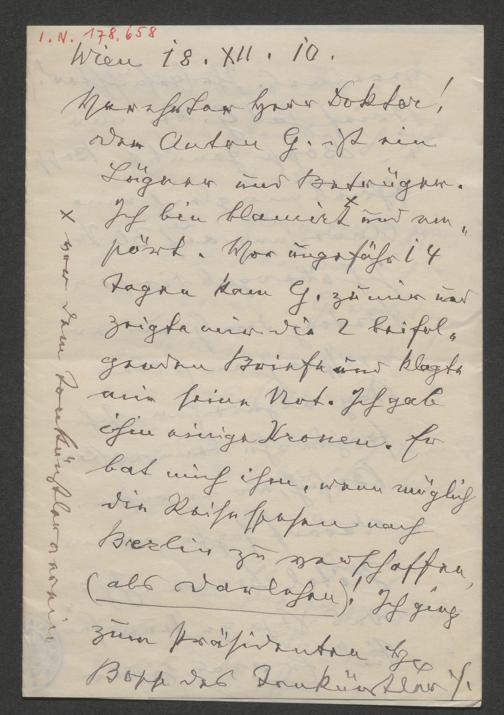 I. N. 178.658
Wien 18. XII. 10.
Verehrter Herr Doktor!
der Anton G. ist ein
Lügner und Betrüger.
Ich bin blamirt x und em„
pört. Vor ungefähr 14
Tagen kam G. zu mir und
zeigte mir die 2 beifol„
genden Briefe und klagte
mir seine Not. Ich gab
ihm einige Kronen. Er
bat mich ihm, wenn möglich
die Reisespesen nach
Berlin zu verschaffen,
(als Darlehen)! Ich ging
zum Präsidenten
Bopp des Tonkünstler ./.
x vor dem Tonkünstlerverein